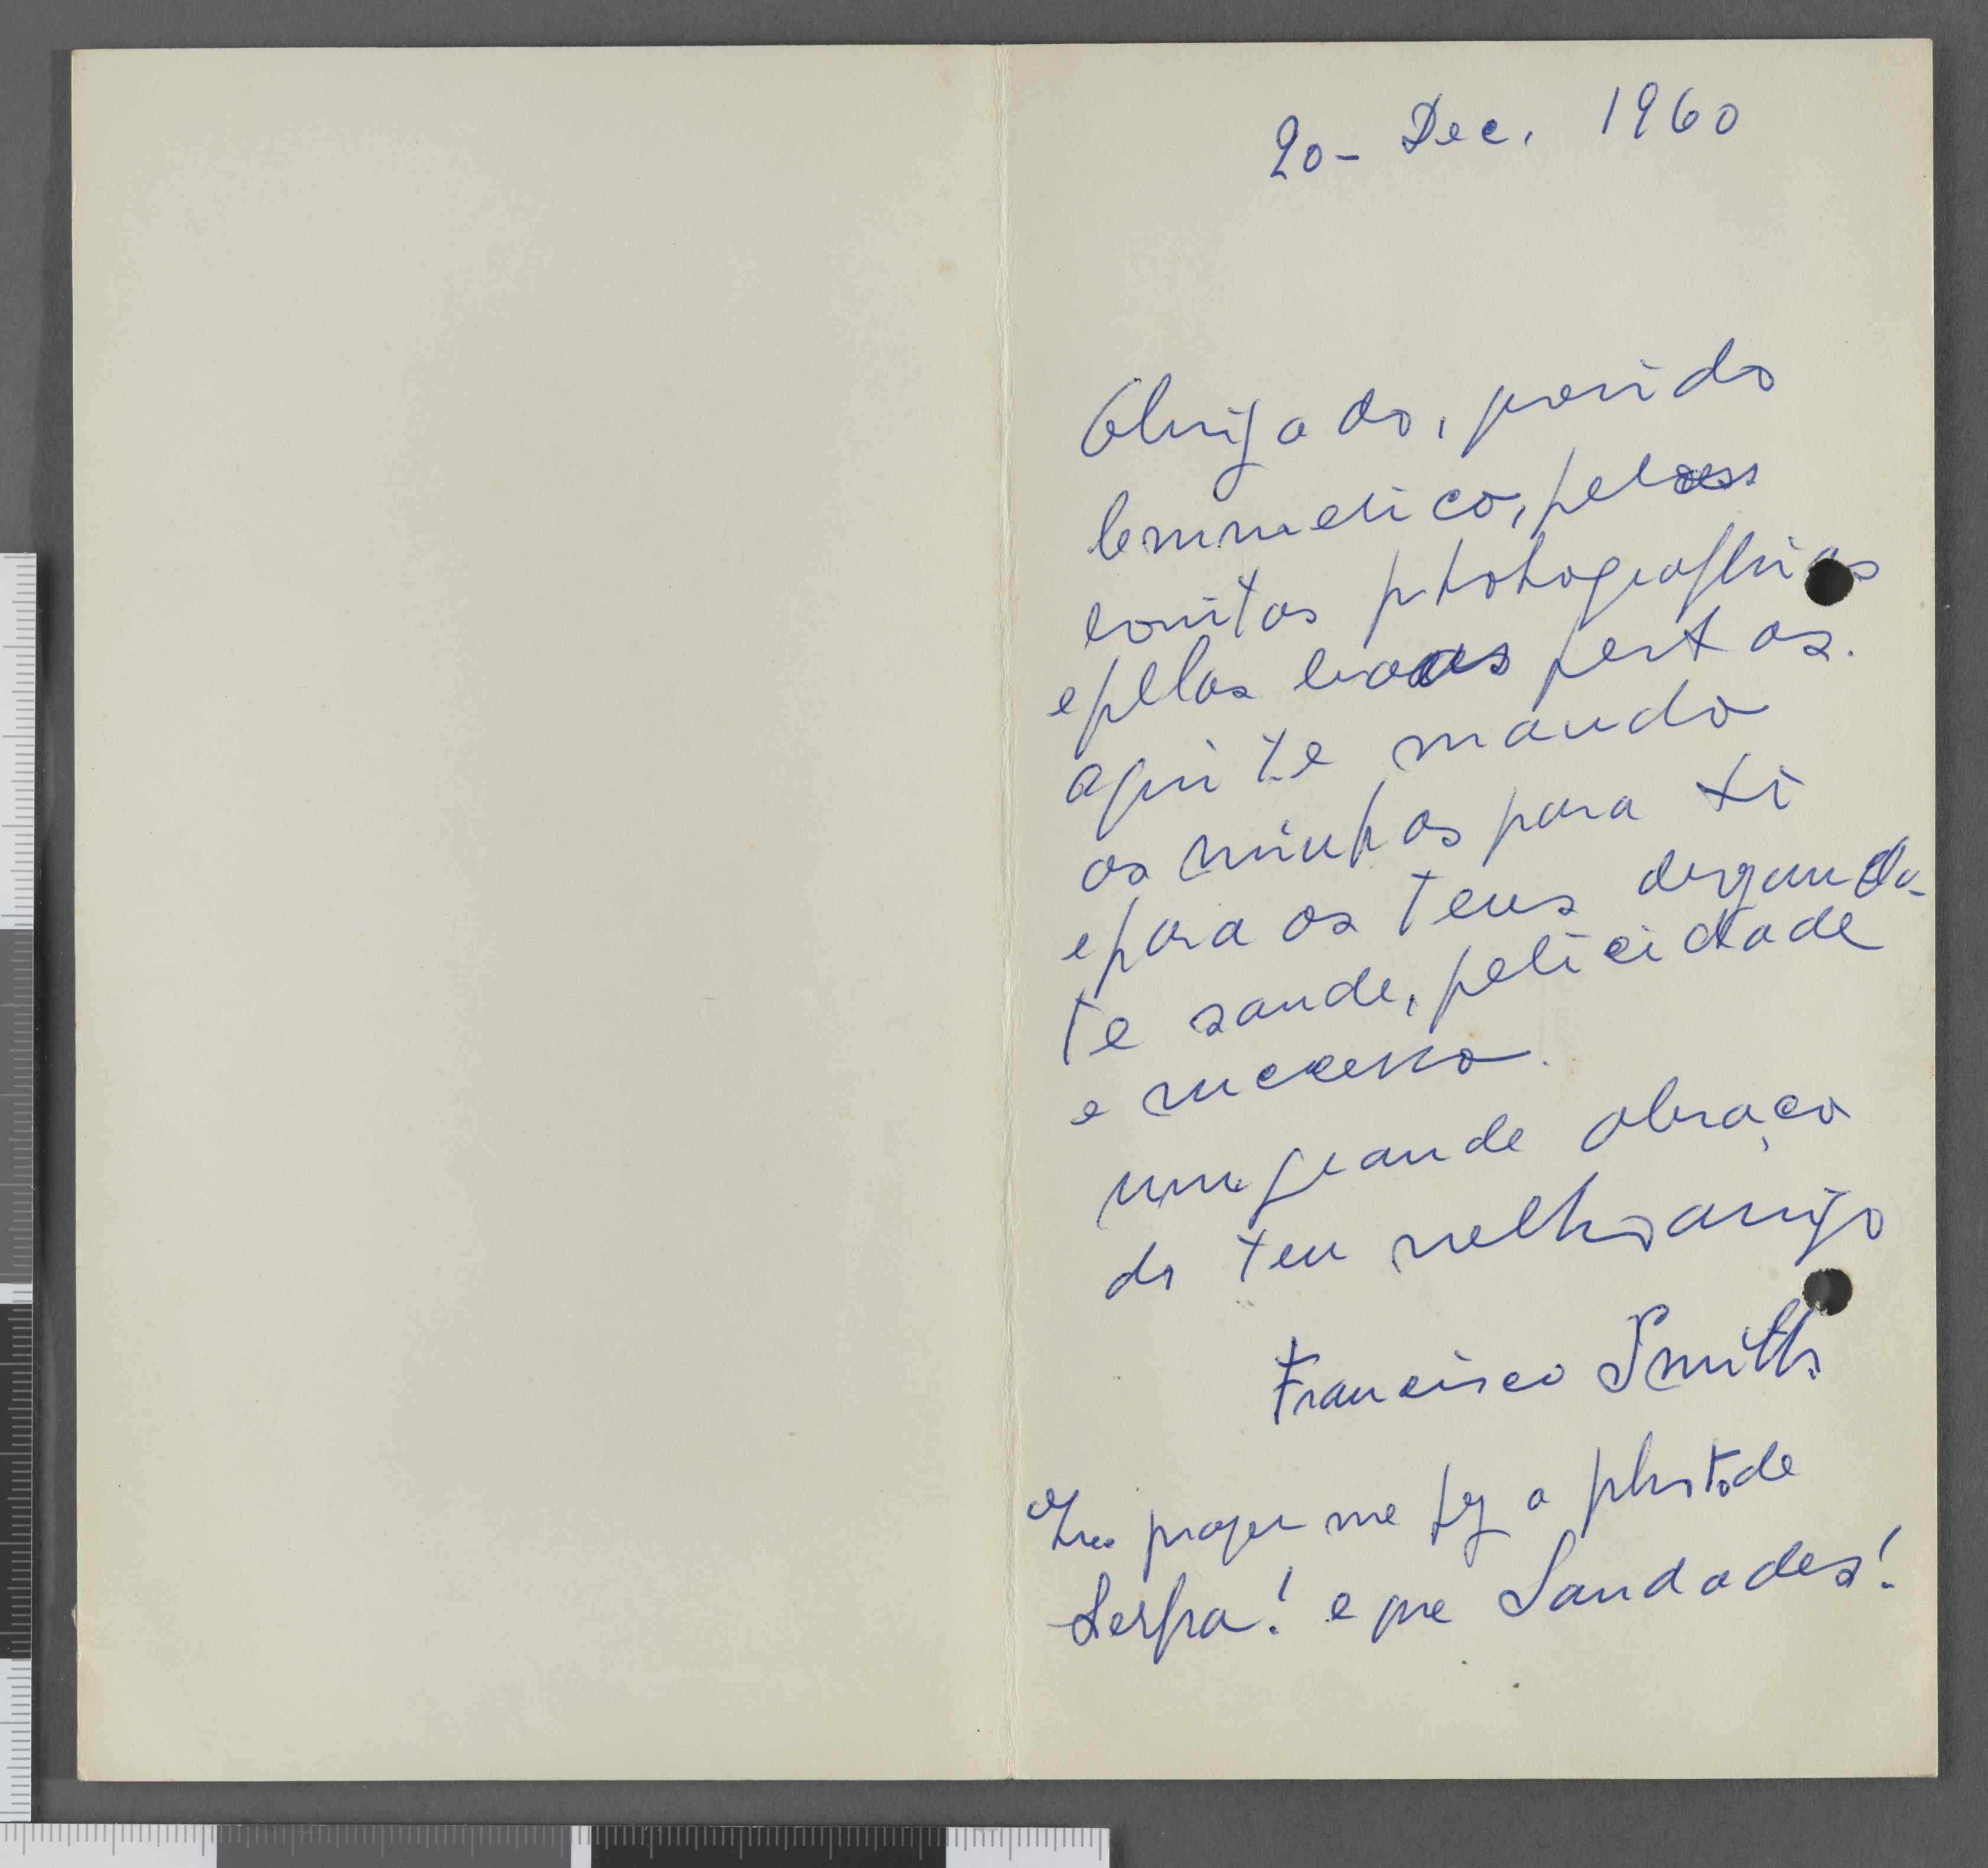 20- Dec. 1960
Obrigado, querido
Bemmerico, pelas
bonitas photographias
e pelas boas festas.
aqui te mando
as minhas para ti
e para os teus desejando-
te saude, felicidade
e successo.
um grande abraço
do teu velho amigo
Francisco Smith
prazer me fez a photo de
Serpa! e que Saudades!